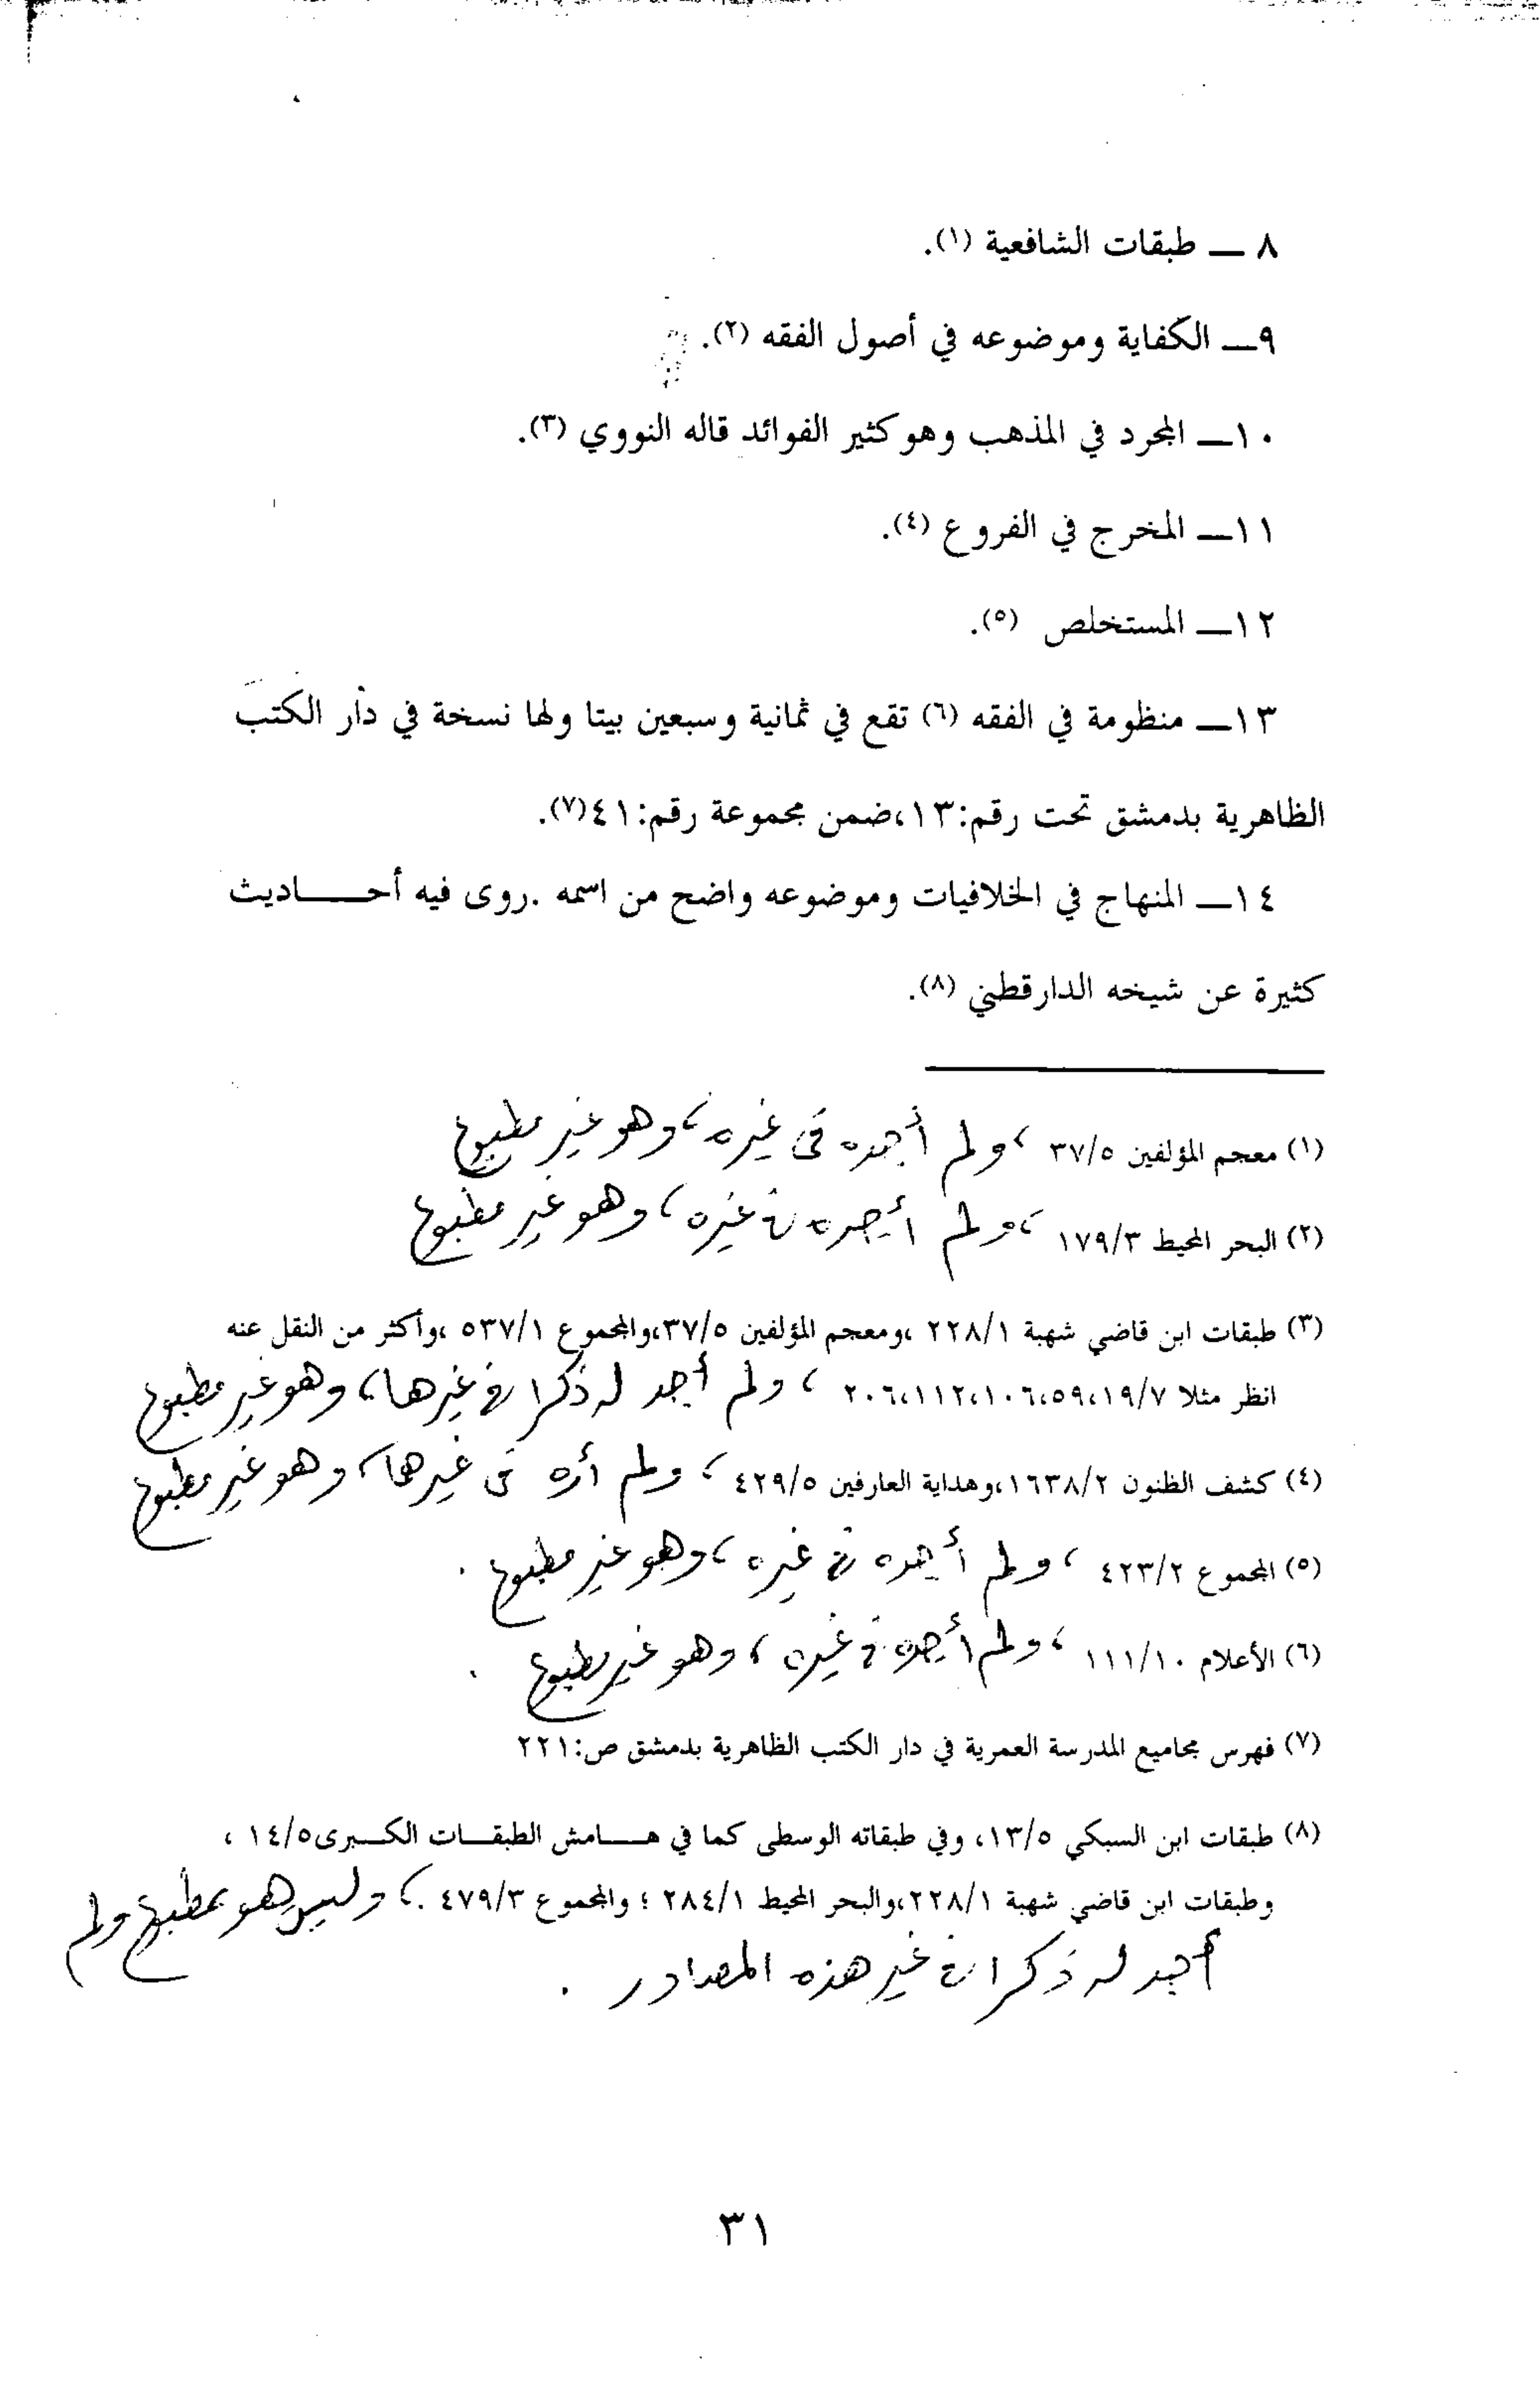 ٨ ــ طبقات الشافعية (١).
٩ــ الكفاية وموضوعه في أصول الفقه (٢).
١٠ــ المجرد في المذهب وهو كثير الفوائد قاله النووي (٣).
١١ــ المخرج في الفروع (٤).
١٢ــ المستخلص (٥).
١٣ــ منظومة في الفقه (٦) تقع في ثمانية وسبعين بيتا ولها نسخة في دار الكتب
الظاهرية بدمشق تحت رقم:١٣،ضمن مجموعة رقم:٤١(٧).
١٤ــ المنهاج في الخلافيات وموضوعه واضح من اسمه .روى فيه أحـــــاديث
كثيرة عن شيخه الدارقطني (٨).
(١) معجم المؤلفين ٣٧/٥ ، ولم أجده في غيره ، وهو غير مطبوع
(٢) البحر المحيط ١٧٩/٣ ، ولم أجده في غيره ، وهو غير مطبوع
(٣) طبقات ابن قاضي شهبة ٢٢٨/١ ،ومعجم المؤلفين ٣٧/٥،والمجموع ٥٣٧/١ ،وأكثر من النقل عنه
انظر مثلا ١٩/٧،٥٩،١٠٦،١١٢،٢٠٦ ، ولم أجد له ذكرا في غيرها ، وهو غير مطبوع
(٤) كشف الظنون ١٦٣٨/٢،وهداية العارفين ٤٢٩/٥ ، ولم أره في غيرها ، وهو غير مطبوع
(٥) المجموع ٤٢٣/٢ ، ولم أجده في غيره ، وهو غير مطبوع .
(٦) الأعلام ١١١/١٠ ، ولم أجده في غيره ، وهو غير مطبوع .
(٧) فهرس مجاميع المدرسة العمرية في دار الكتب الظاهرية بدمشق ص:٢٢١
(٨) طبقات ابن السبكي ١٣/٥، وفي طبقاته الوسطى كما في هـــامش الطبقـــات الكـــبرى١٤/٥ ،
وطبقات ابن قاضي شهبة ٢٢٨/١،والبحر المحيط ٢٨٤/١ ؛ والمجموع ٤٧٩/٣ . ، وليس هو بمطبوع ولم
أجد له ذكرا في غير هذه المصادر .
٣١